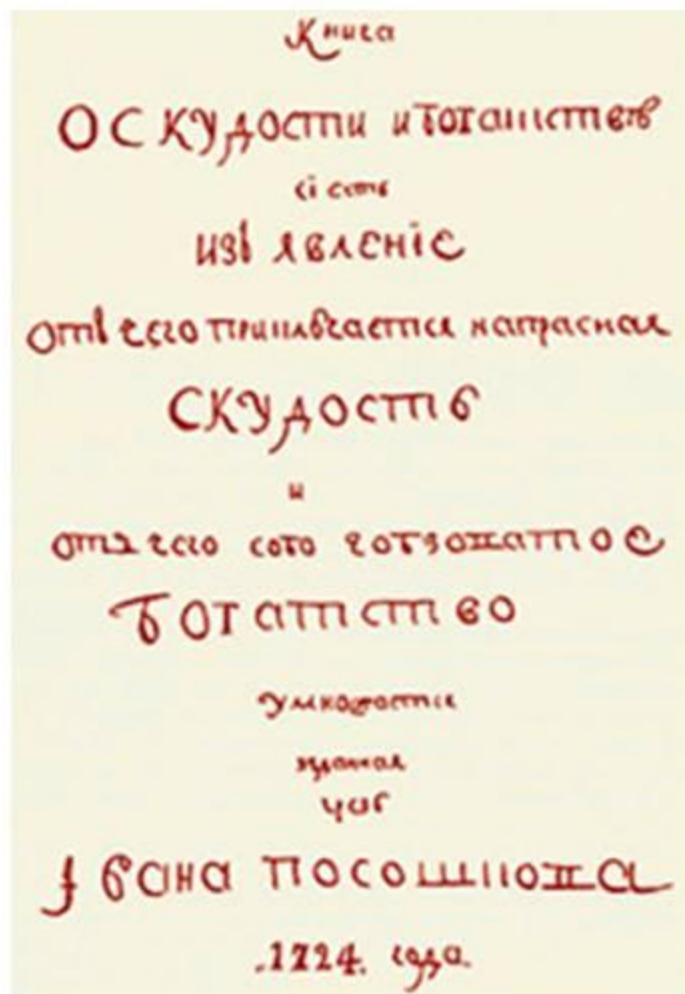 Книга
О СКУДОСТИ и богатстве
сі есть
изъявленіе
отъ чего приключается напрасная
СКУДОСТЬ
и
отъ чего
богатство
умножается
Івана посошкова
.1724. года.